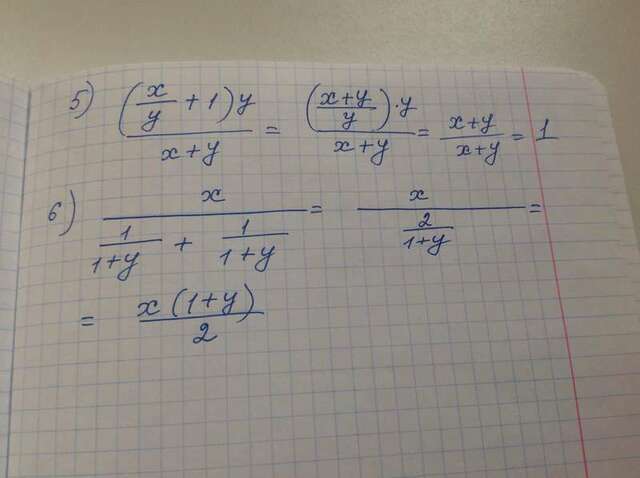 5) ((x/y + 1)y)/(x+y) = (((x+y)/y)·y)/(x+y) = (x+y)/(x+y) = 1
6) x/(1/(1+y) + 1/(1+y)) = x/(2/(1+y)) =
= (x(1+y))/2